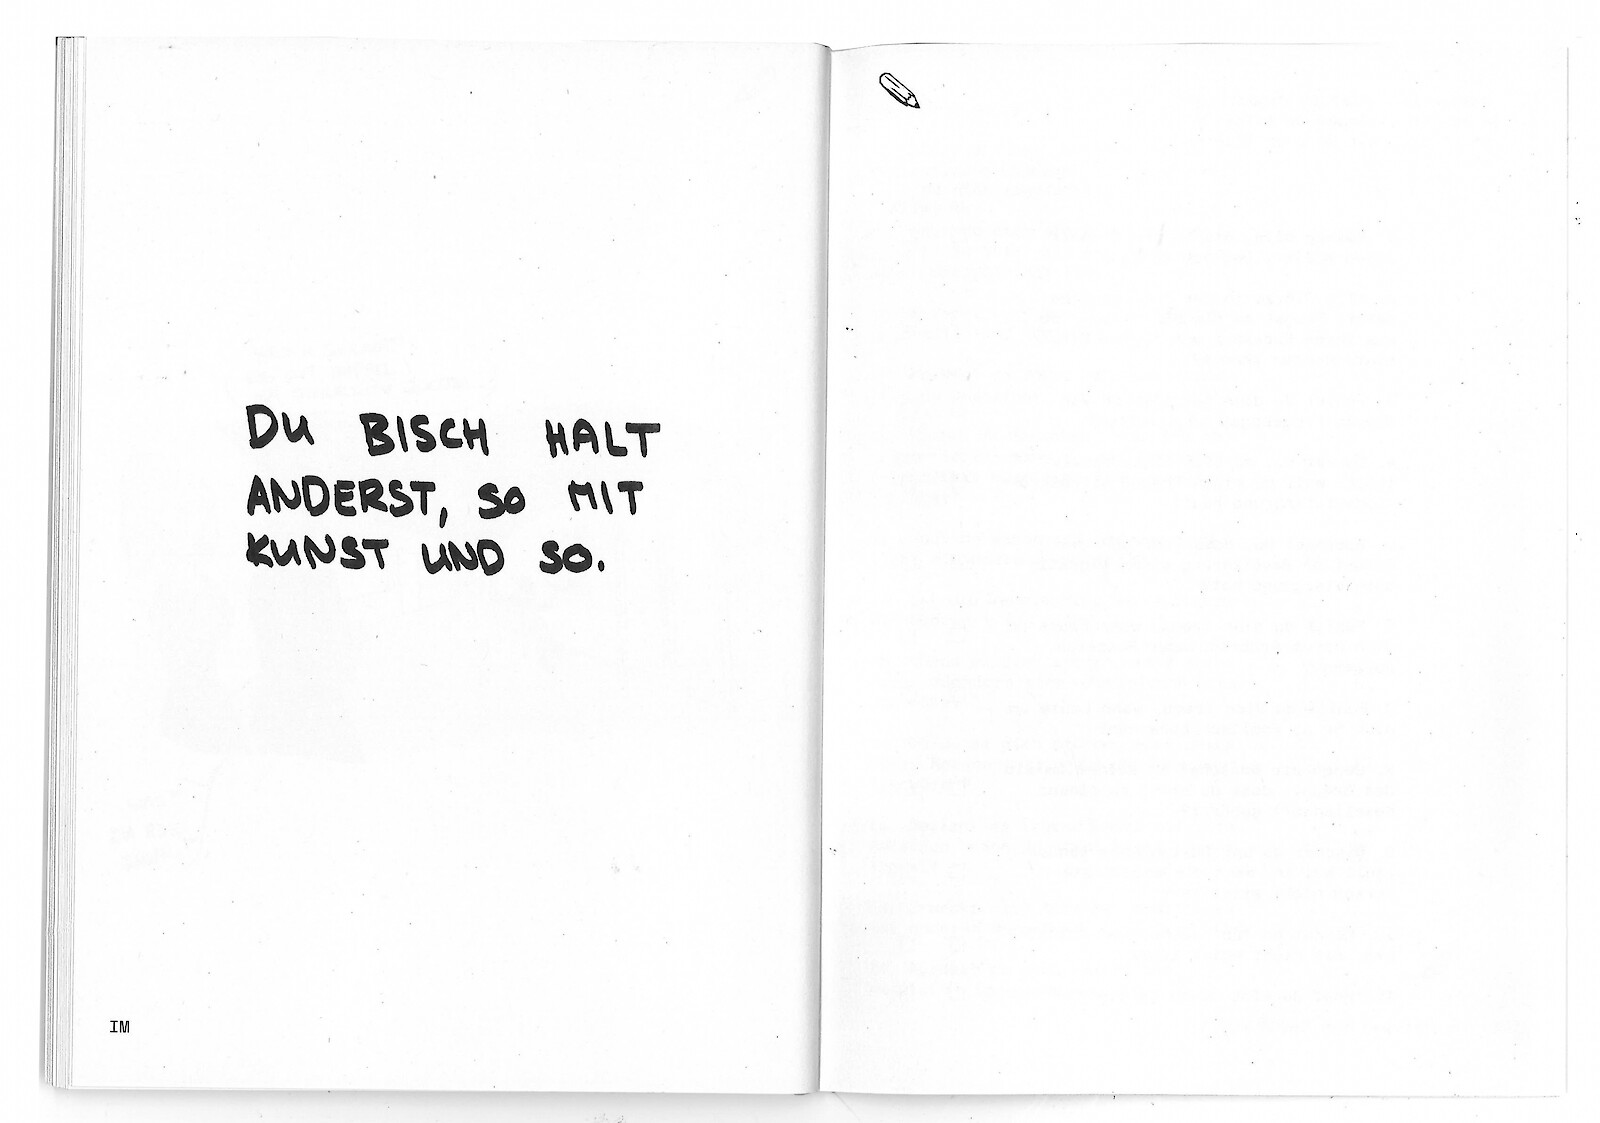 DU BISCH HALT
ANDERST, SO MIT
KUNST UND SO.
IM